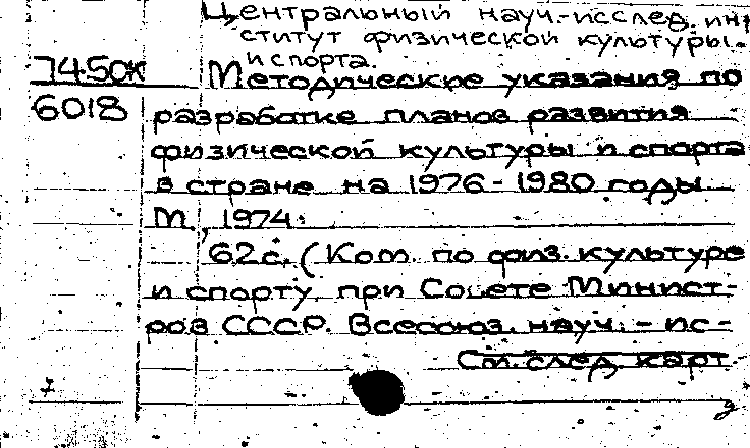 Центральный науч.-исслед. ин-
ститут физической культуры
и спорта.
74-50К Методические указания по
6018 разработке планов развития
физической культуры и спорта
в стране на 1976-1980 годы.
М., 1974.
62с. (Ком. по физ. культуре
и спорту при Совете Минист-
ров СССР. Всесоюз. науч. - ис-
См. след. карт.